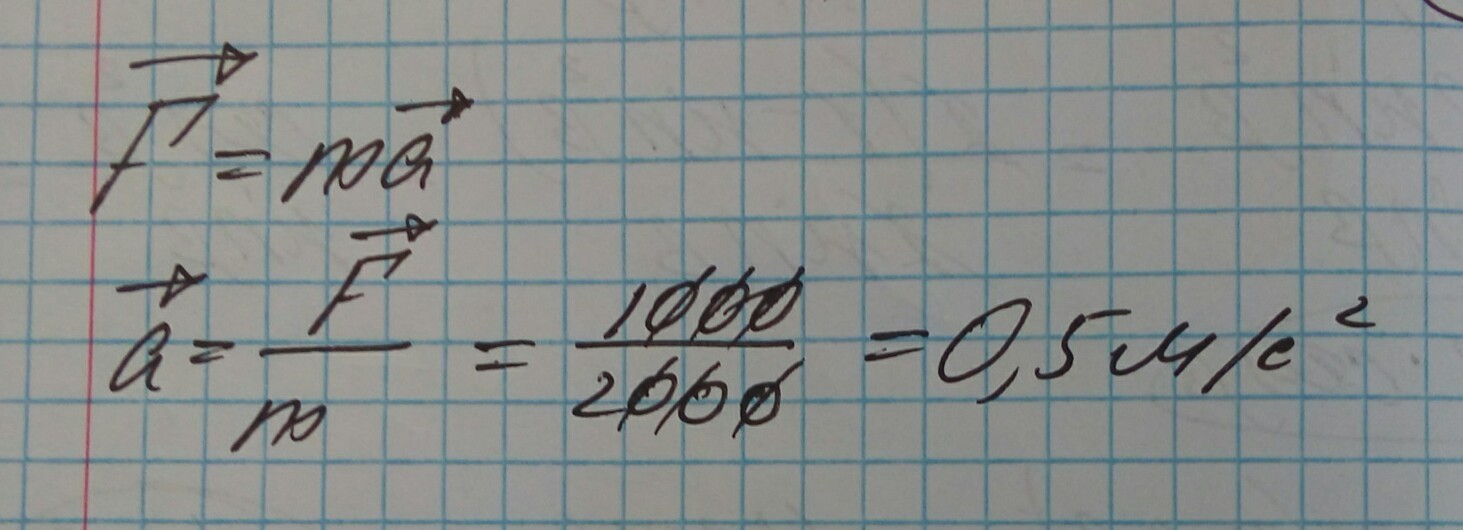 F⃗ = ma⃗
a⃗ = F⃗/m = 1000/2000 = 0,5 м/с²